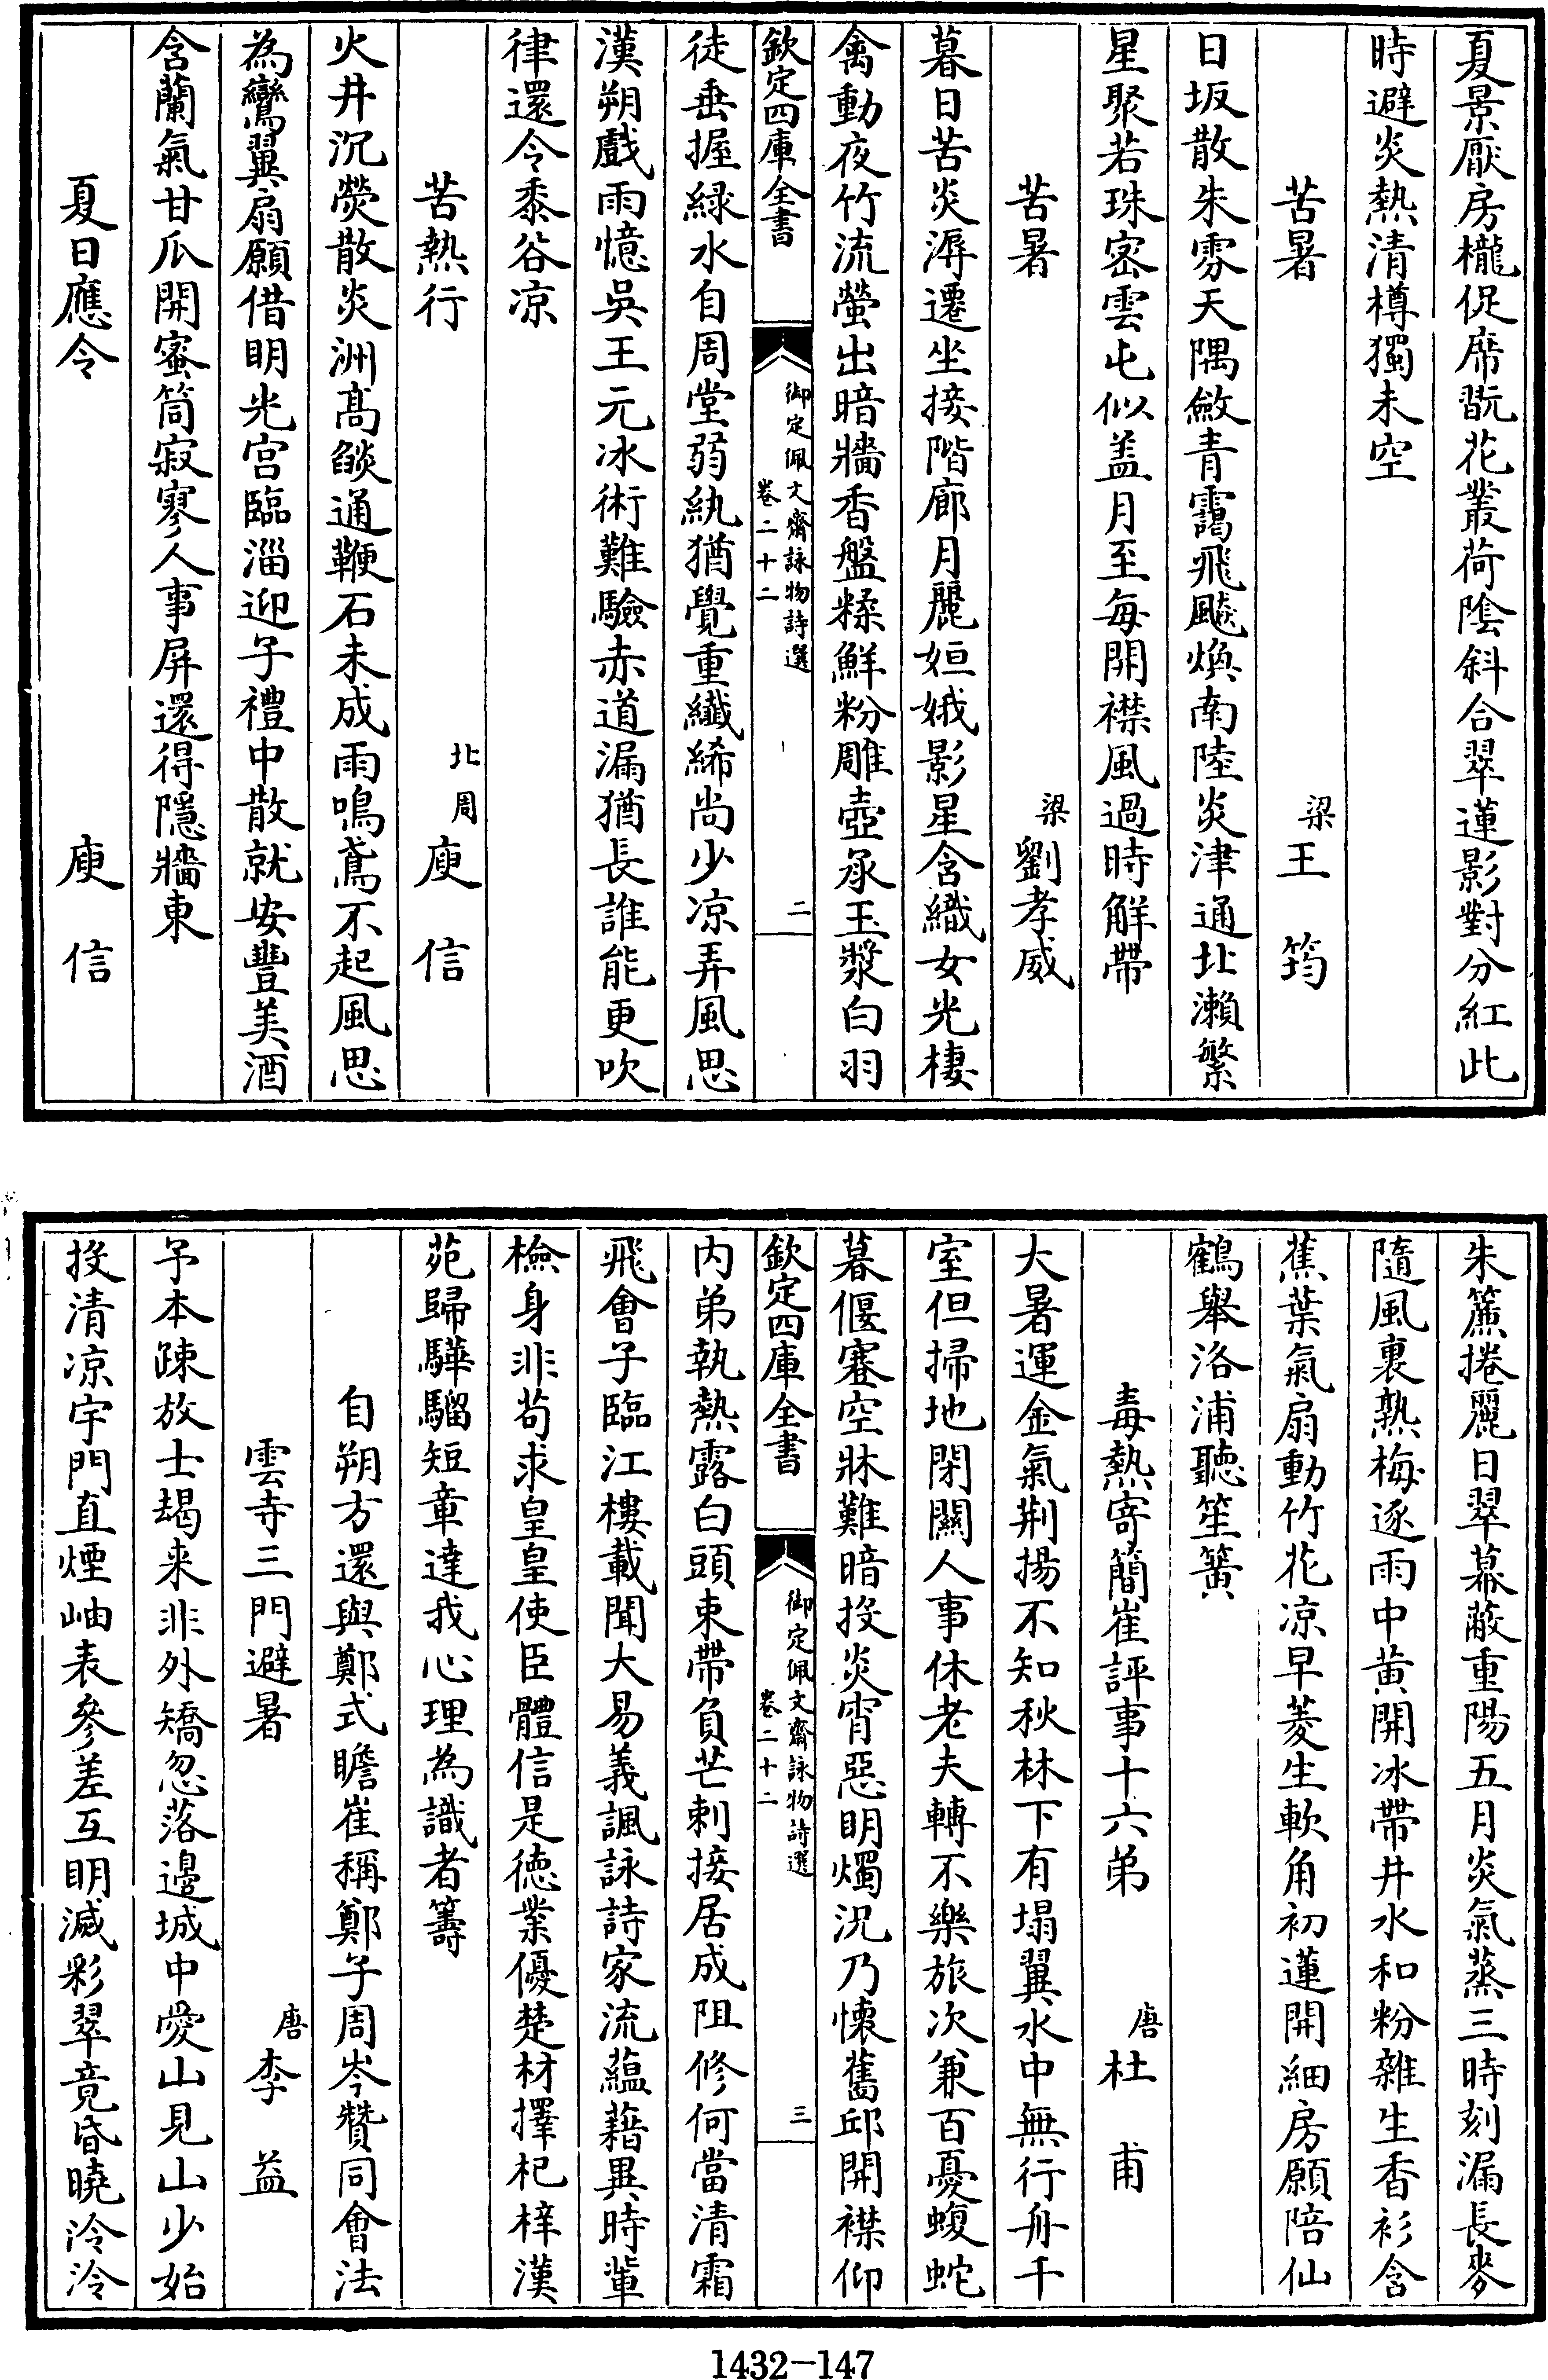 夏景厭房櫳促席翫花叢荷陰斜合翠蓮影對分紅此
時避炎熱清樽獨未空
苦暑 梁王筠
日坂散朱雰天隅斂青靄飛飇煥南陸炎津通北瀨繁
星聚若珠密雲屯似盖月至每開襟風過時解帶
苦暑 梁劉孝威
暮日苦炎溽遷坐接階廊月麗姮娥影星含織女光棲
禽動夜竹流螢出暗牆香盤糅鮮粉雕壺承玉漿白羽
欽定四庫全書 御定佩文齋詠物詩選 卷二十二 二
徒垂握緑水自周堂弱紈猶覺重纖絺尚少凉弄風思
漢朔戲雨憶吳王元冰術難驗赤道漏猶長誰能更吹
律還令黍谷凉
苦熱行 北周庾信
火井沉熒散炎洲髙燄通鞭石未成雨鳴鳶不起風思
為鸞翼扇願借明光宫臨淄迎子禮中散就安豐美酒
含蘭氣甘瓜開蜜筒寂寥人事屏還得隱牆東
夏日應令 庾信
朱簾捲麗日翠幕蔽重陽五月炎氣蒸三時刻漏長麥
隨風裏熟梅逐雨中黄開冰帶井水和粉雜生香衫含
蕉葉氣扇動竹花凉早菱生軟角初蓮開細房願陪仙
鶴舉洛浦聽笙簧
毒熱寄簡崔評事十六弟 唐杜甫
大暑運金氣荆揚不知秋林下有塌翼水中無行舟千
室但掃地閉關人事休老夫轉不樂旅次兼百憂蝮蛇
暮偃蹇空牀難暗投炎宵惡明燭況乃懷舊邱開襟仰
欽定四庫全書 御定佩文齋詠物詩選 卷二十二 三
内弟執熱露白頭束帶負芒刺接居成阻修何當清霜
飛會子臨江樓載聞大易義諷詠詩家流蘊藉異時輩
檢身非苟求皇皇使臣體信是徳業優楚材擇杞梓漢
苑歸驊騮短章達我心理為識者籌
自朔方還與鄭式瞻崔稱鄭子周岑贊同會法
雲寺三門避暑 唐李益
予本疎放士朅来非外矯忽落邊城中愛山見山少始
投清凉宇門直煙岫表參差互明滅彩翠竟昏曉泠泠
1432-147